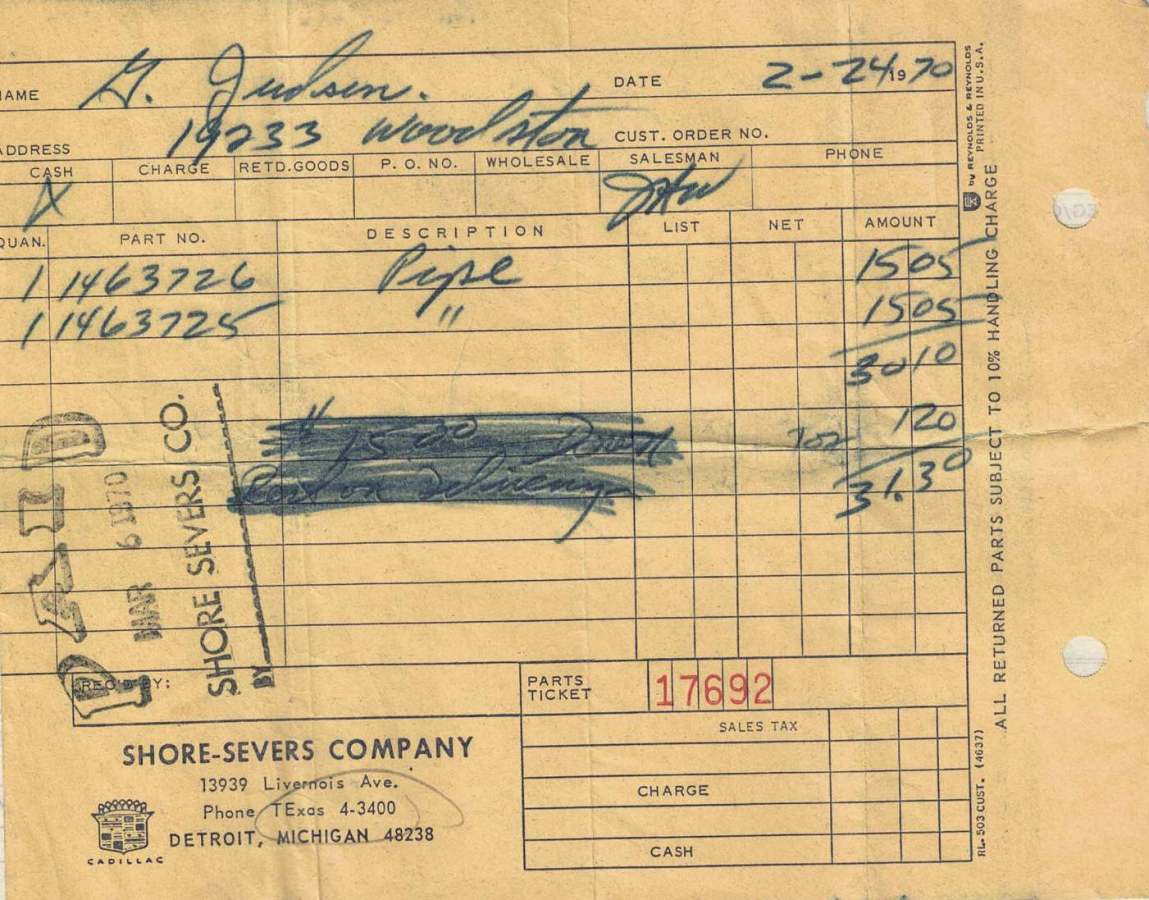 NAME G. Judson. DATE 2-24 1970
ADDRESS 19233 Woodston CUST. ORDER NO.
CASH CHARGE RETD.GOODS P. O. NO. WHOLESALE SALESMAN PHONE
X JHW
QUAN. PART NO. DESCRIPTION LIST NET AMOUNT
1 1463726 Pipe 1505
1 1463725 " 1505
3010
$ 15.00 Down 120
on Delivery 31.30
PAID
MAR 6 1970
SHORE SEVERS CO.
BY
REC'D BY:
PARTS TICKET 17692
SALES TAX
CHARGE
CASH
SHORE-SEVERS COMPANY
13939 Livernois Ave.
Phone TExas 4-3400
DETROIT, MICHIGAN 48238
CADILLAC
by REYNOLDS & REYNOLDS
PRINTED IN U.S.A.
ALL RETURNED PARTS SUBJECT TO 10% HANDLING CHARGE
RL. 503 CUST. (4637)